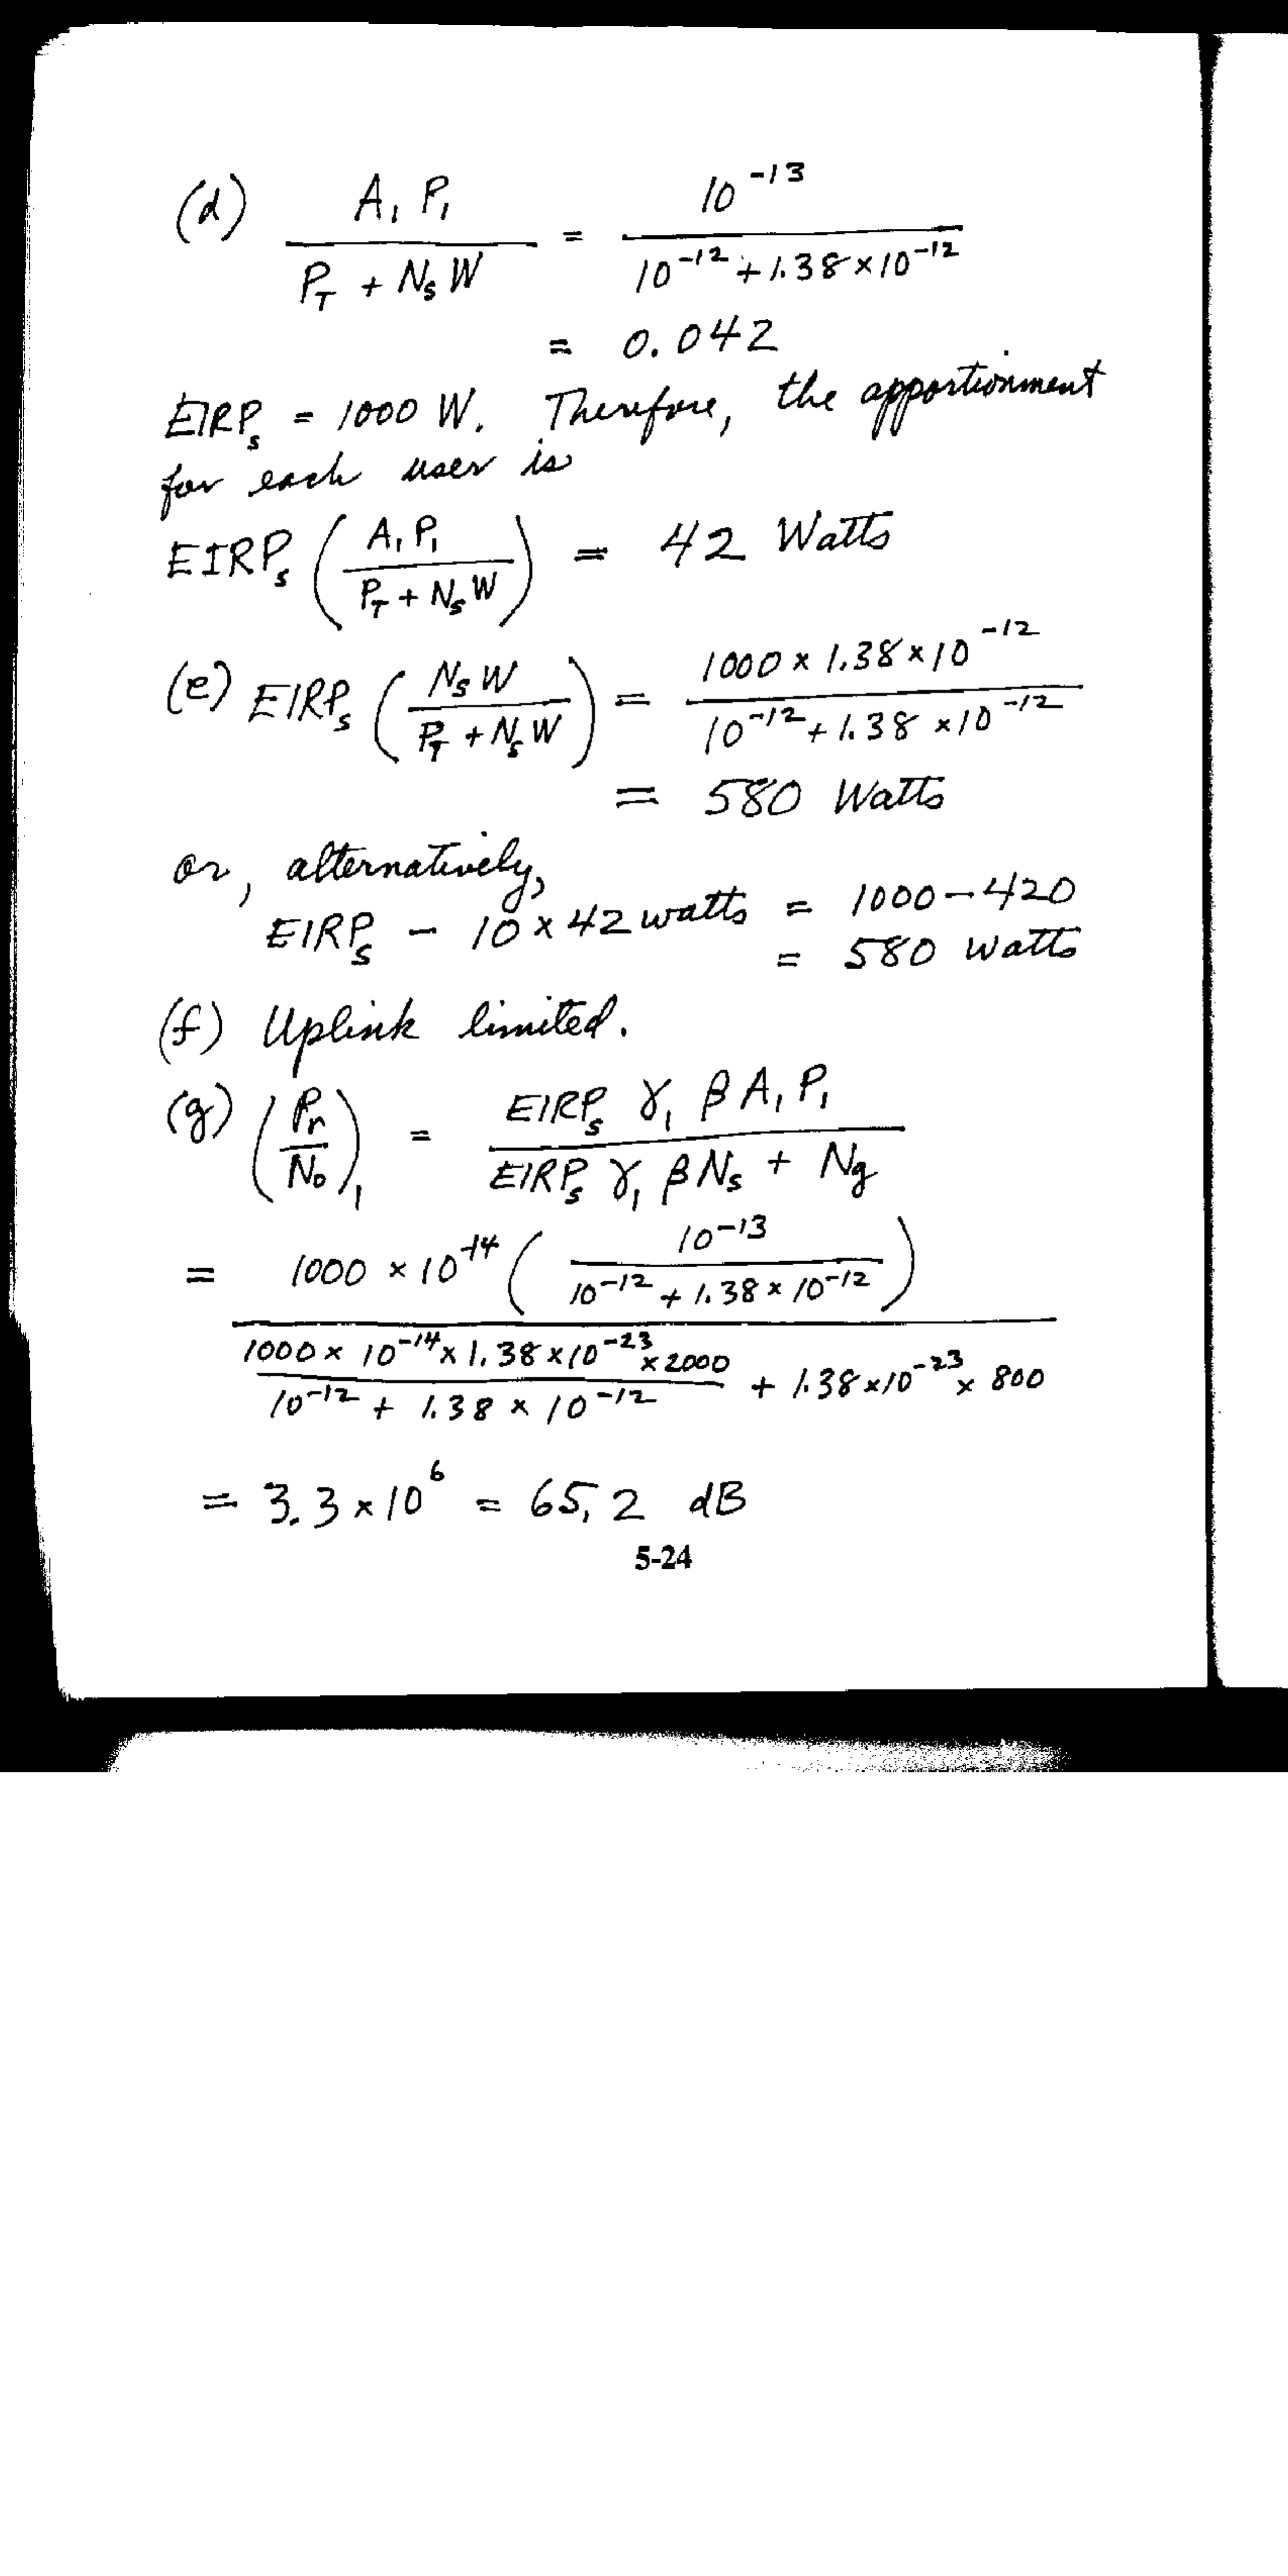 (d) A₁ P₁ / (P_T + N_s W) = 10⁻¹³ / (10⁻¹² + 1.38 × 10⁻¹²)
= 0.042
EIRP_s = 1000 W. Therefore, the apportionment
for each user is
EIRP_s (A₁ P₁ / (P_T + N_s W)) = 42 Watts
(e) EIRP_s (N_s W / (P_T + N_s W)) = 1000 × 1.38 × 10⁻¹² / (10⁻¹² + 1.38 × 10⁻¹²)
= 580 Watts
or, alternatively,
EIRP_s − 10 × 42 watts = 1000 − 420
= 580 watts
(f) Uplink limited.
(g) (P_r / N_0)₁ = EIRP_s γ₁ β A₁ P₁ / (EIRP_s γ₁ β N_s + N_g)
= 1000 × 10⁻¹⁴ (10⁻¹³ / (10⁻¹² + 1.38 × 10⁻¹²)) / (1000 × 10⁻¹⁴ × 1.38 × 10⁻²³ × 2000 / (10⁻¹² + 1.38 × 10⁻¹²) + 1.38 × 10⁻²³ × 800)
= 3.3 × 10⁶ = 65,2 dB
5-24